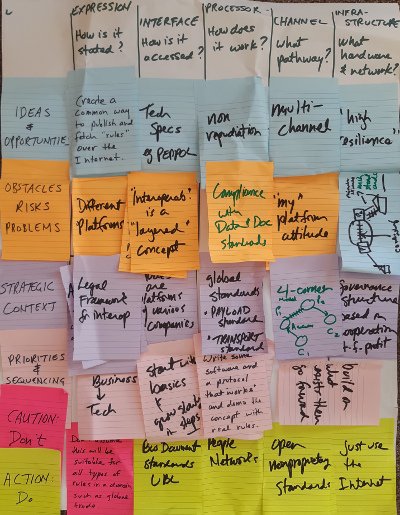 EXPRESSION
How is it
stated?
INTERFACE
How is it
accessed?
PROCESSOR
How does
it work?
CHANNEL
what
pathway?
INFRA-
STRUCTURE
what
hardware
& network?
IDEAS
&
OPPORTUNITIES
Create a
common way
to publish and
fetch "rules"
over the
Internet.
Tech
Specs
eg PEPPOL
non
repudiation
Multi-
channel
"high
resilience"
OBSTACLES
RISKS
PROBLEMS
Different
Platforms
"Interoperab"
is a
"layered"
concept
Compliance
with
Data & Doc
standards
"my"
platform
attitude
STRATEGIC
CONTEXT
Legal
Framework
& interop
are
platforms
various
companies
global
standards
PAYLOAD
standard
TRANSPORT
standard
4-corner
C2
structure
based on
PRIORITIES
&
SEQUENCING
Business
Tech
start with
basics
&
grow slowly
in steps
Write some
software and
a protocol
that "works"
and demo the
concept with
real rules.
build on
what
exists then
go forward
CAUTION:
Don't
this will be
suitable for
all types of
rules in a domain
such as global
trade
ACTION:
Do
Biz Document
standards
UBL
People
Networks
open
nonproprietary
standards
Just use
the
Internet